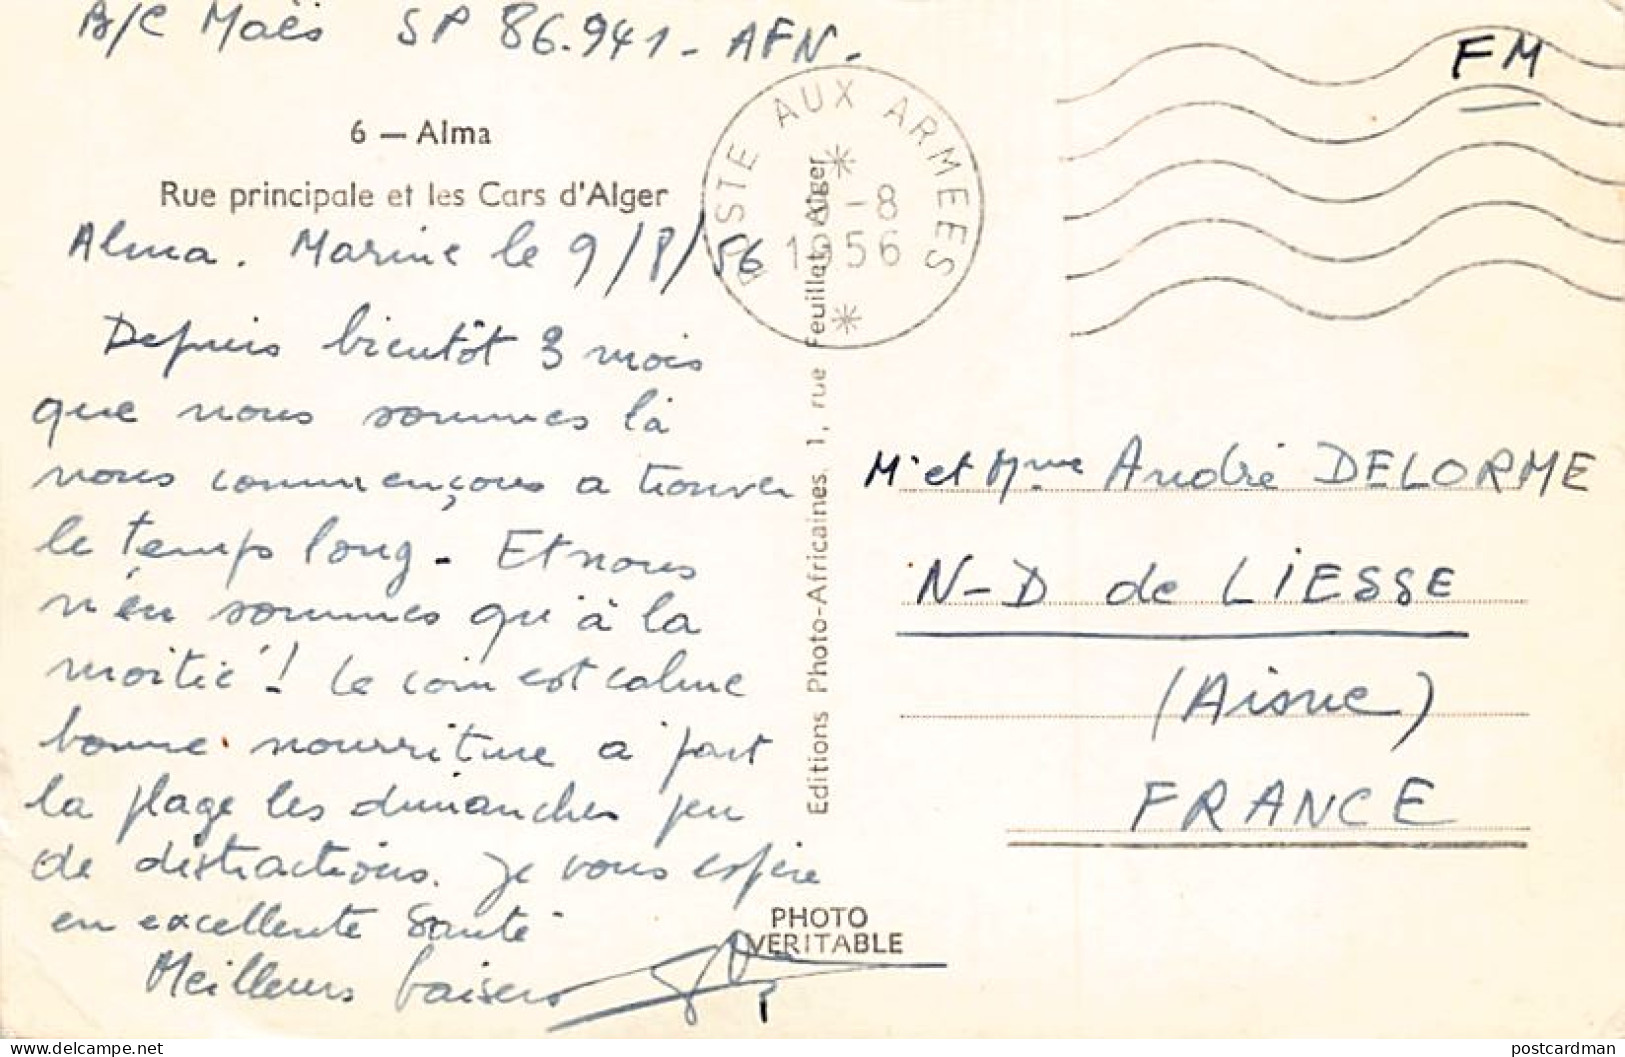 B/C Maës SP 86.941 - AFN -
FM
6 — Alma
Rue principale et les Cars d'Alger
POSTE AUX ARMEES
-8
1956
Alma. Marine le 9/8/56
Depuis bientôt 3 mois
que nous sommes là
nous commençons a trouver
le temps long - Et nous
n'en sommes qu'à la
moitié ! Le coin est calme
bonne nourriture a part
la plage les dimanches peu
de distractions. Je vous espère
en excellente santé
Meilleurs baisers
Editions Photo-Africaines, 1, rue Feuillet, Alger
Mr et Mme André DELORME
N-D de LIESSE
(Aisne)
FRANCE
PHOTO
VERITABLE
www.delcampe.net
postcardman